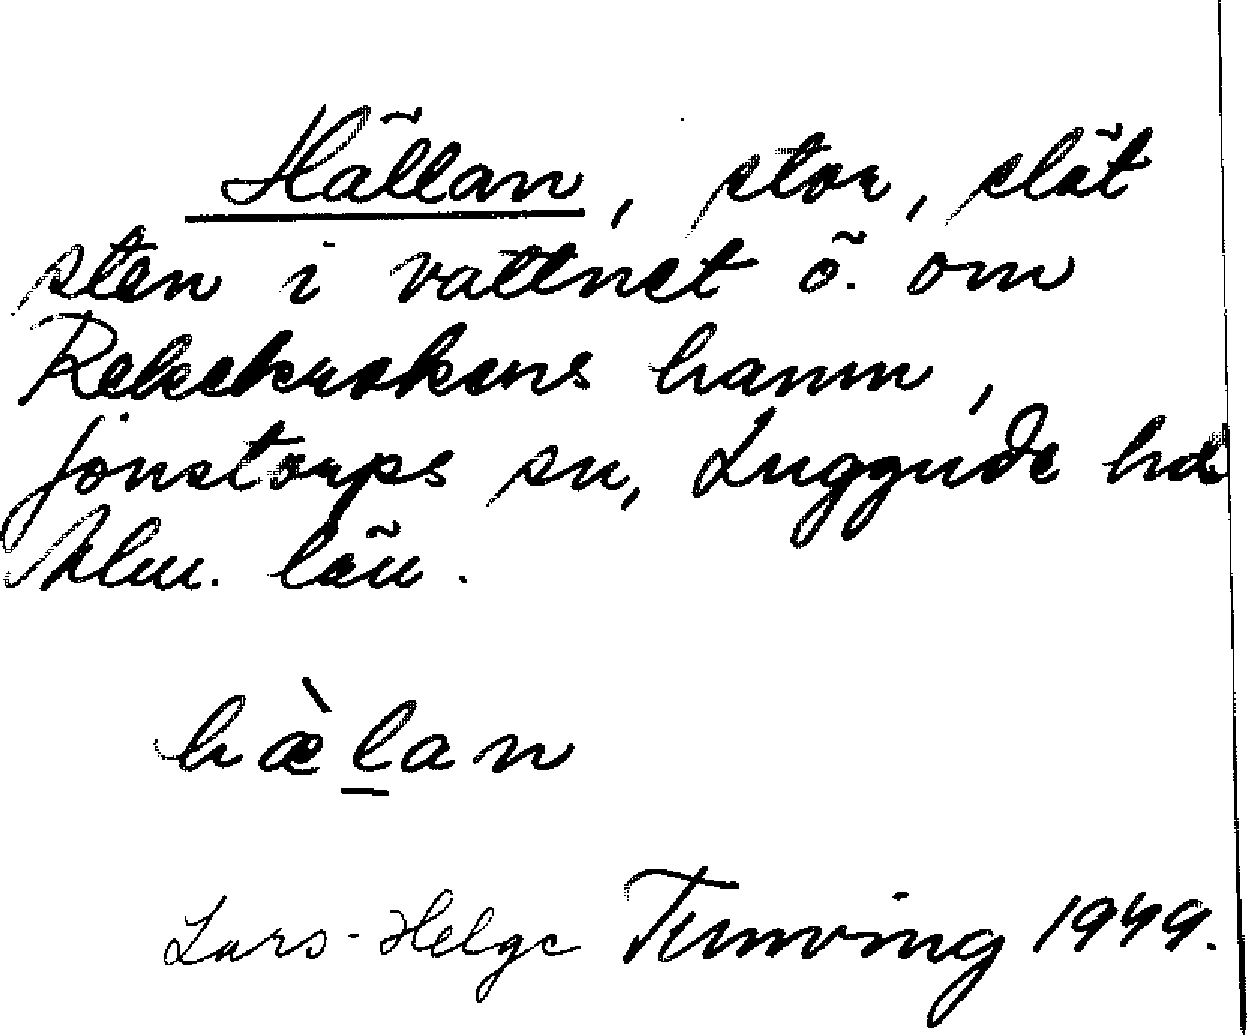 Hällan, stor, slät
sten i vattnet ö. om
Rekekrokens hamn,
Jonstorps sn, Luggude hd
Mlm. län.
hæ̀lan
Lars-Helge Tunving 1949.